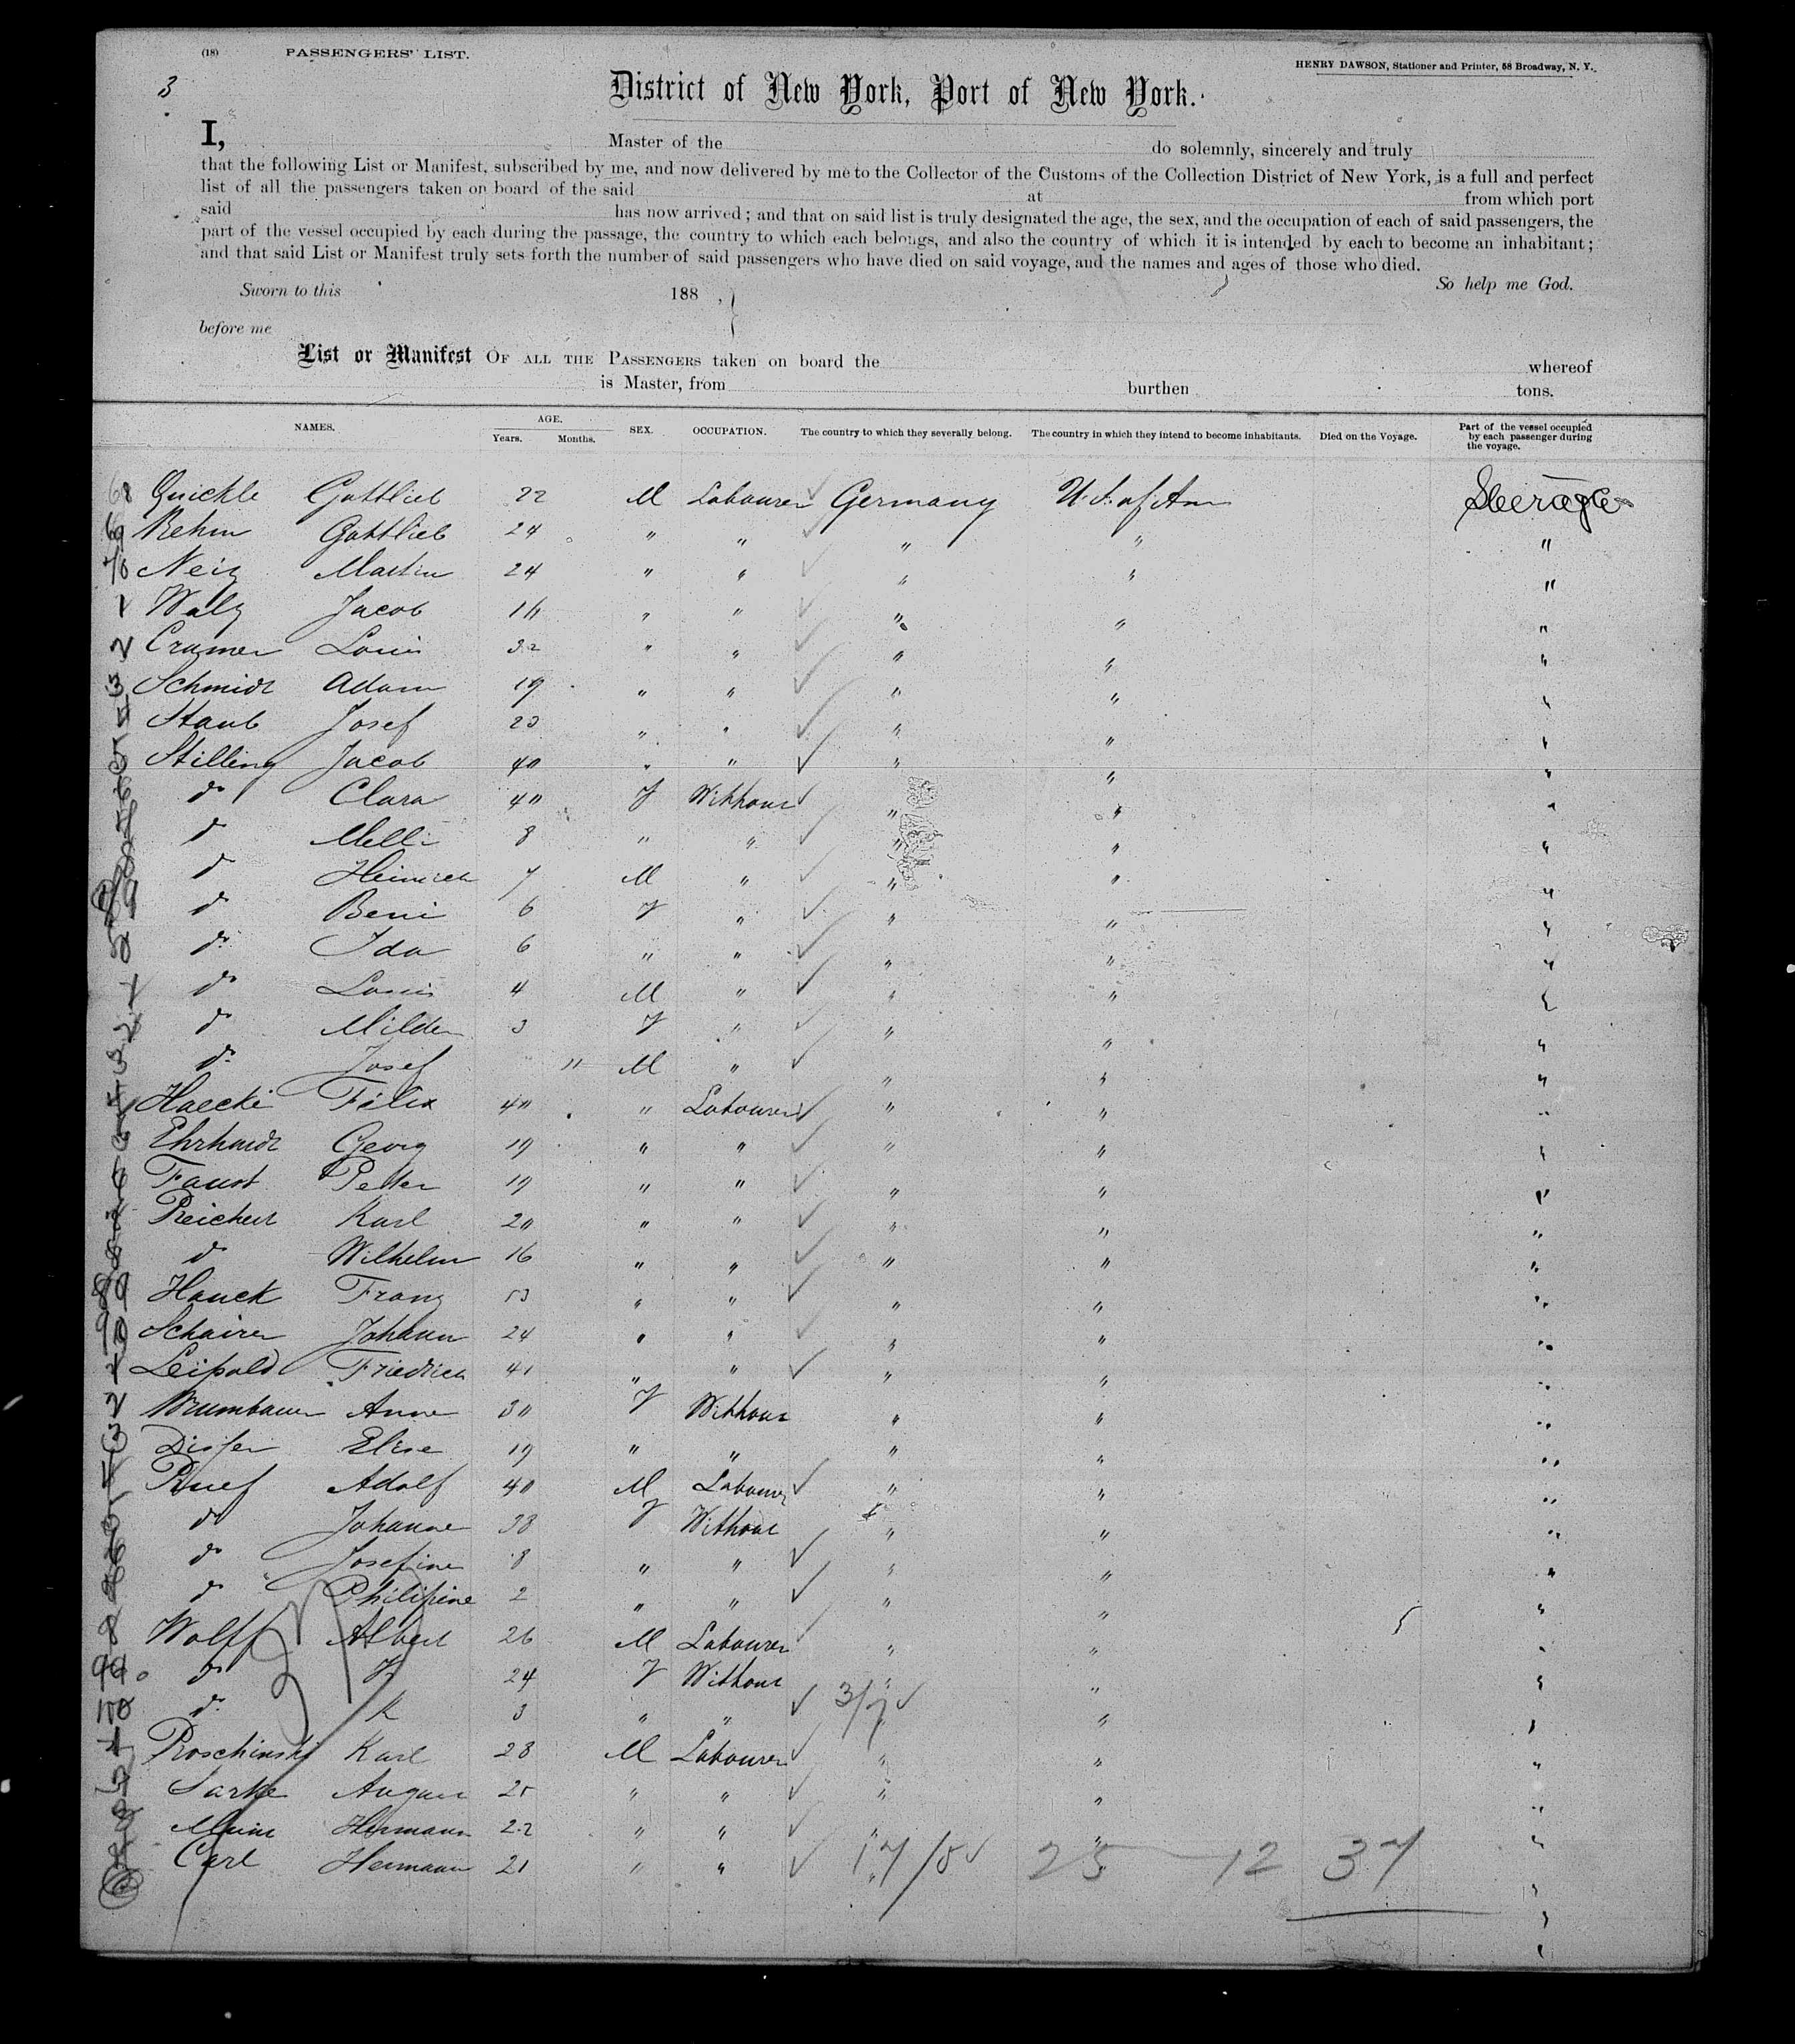 (18) PASSENGERS' LIST.
HENRY DAWSON, Stationer and Printer, 58 Broadway, N. Y.
3
District of New York, Port of New York.
I, Master of the do solemnly, sincerely and truly
that the following List or Manifest, subscribed by me, and now delivered by me to the Collector of the Customs of the Collection District of New York, is a full and perfect
list of all the passengers taken on board of the said at from which port
said has now arrived; and that on said list is truly designated the age, the sex, and the occupation of each of said passengers, the
part of the vessel occupied by each during the passage, the country to which each belongs, and also the country of which it is intended by each to become an inhabitant;
and that said List or Manifest truly sets forth the number of said passengers who have died on said voyage, and the names and ages of those who died.
Sworn to this 188 , So help me God.
before me
List or Manifest OF ALL THE PASSENGERS taken on board the whereof
is Master, from burthen tons.
NAMES. AGE. Years. Months. SEX. OCCUPATION. The country to which they severally belong. The country in which they intend to become inhabitants. Died on the Voyage. Part of the vessel occupied by each passenger during the voyage.
68 Quickle Gottlieb 22 M Labourer Germany U.S. of Am Steerage
69 Rehm Gottlieb 24 " " " " "
70 Neiz Martin 24 " " " " "
1 Walz Jacob 16 " " " " "
2 Cramer Louis 32 " " " " "
3 Schmidt Adam 19 " " " " "
4 Staub Josef 20 " " " " "
5 Stilling Jacob 40 " " " " "
6 do Clara 40 F Without " " "
7 do Melli 8 " " " " "
8 do Heinrich 7 M " " " "
9 do Beni 6 F " " " "
80 do Ida 6 " " " " "
1 do Louis 4 M " " " "
2 do Milden 3 F " " " "
3 do Josef 11 M " " " "
4 Haecki Felix 40 " Labourer " " "
5 Ehrhardt Georg 19 " " " " "
6 Faust Peter 19 " " " " "
7 Reichert Karl 20 " " " " "
8 do Wilhelm 16 " " " " "
89 Hauck Franz 53 " " " " "
90 Schairer Johann 24 " " " " "
1 Leipold Friedrich 41 " " " " "
2 Brumbauer Anne 30 F Without " " "
3 Elise 19 " " " " "
4 Ruef Adolf 40 M Labourer " " "
5 do Johanne 38 F Without " " "
6 do Josefine 8 " " " " "
7 do Philipine 2 " " " " "
8 Wolff Albert 26 M Labourer " " "
99 do F 24 F Without " " "
100 do K 3 " " 3/7 " "
1 Roschinski Karl 28 M Labourer " " "
2 Sarke August 25 " " " " "
3 Hermann 22 " " " " "
4 Carl Hermann 21 " " 17/5 25 12 37